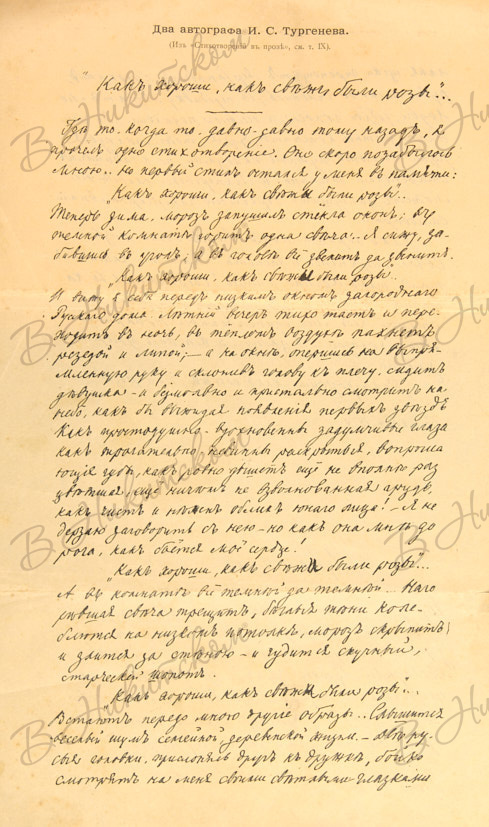 Два автографа И. С. Тургенева.
(Изъ «Стихотвореній въ прозѣ», см. т. IX).
"Какъ хороши, какъ свѣжи были розы"...
Гдѣ-то, когда-то, давно-давно тому назадъ, я
прочелъ одно стихотвореніе. Оно скоро позабылось
мною.. но первый стихъ остался у меня въ памяти:
"Какъ хороши, какъ свѣжи были розы..
Теперь зима. морозъ запушилъ стекла оконъ; въ
темной комнатѣ горитъ одна свѣча. Я сижу, за-
бившись въ уголъ, а въ головѣ всё звенитъ да звенитъ.
"Какъ хороши, какъ свѣжи были розы.
И вижу я себя передъ низкимъ окномъ загороднаго
Русскаго дома. Лѣтній вечеръ тихо таетъ и пере-
ходитъ въ ночь, въ тёпломъ воздухѣ пахнетъ
резедой и липой; — а на окнѣ, опершись на выпря-
мленную руку и склонивъ голову къ плечу, сидитъ
дѣвушка — и безмолвно и пристально смотритъ на
небо, какъ бы выжидая появленія первыхъ звѣздъ
Какъ простодушно-вдохновенны задумчивые глаза
какъ трогательно-невинны раскрытыя, вопроша
ющія губы, какъ ровно дышетъ ещё не вполнѣ рас
цвѣтшая, ещё ничѣмъ не взволнованная грудь,
какъ чистъ и нѣженъ обликъ юнаго лица! — Я не
дерзаю заговорить съ нею — но какъ она мнѣ до
рога, какъ бьётся моё сердце!
"Какъ хороши, какъ свѣжи были розы"...
А въ комнатѣ всё темнѣй да темнѣй... Наго
рѣвшая свѣча трещитъ, бѣглыя тѣни коле-
блются на низкомъ потолкѣ, морозъ скрыпитъ
и злится за стѣною — и чудится скучный,
старческій шопотъ.
"Какъ хороши, какъ свѣжи были розы"...
Встаютъ передо мною другіе образы.. Слышится
весёлый шумъ семейной деревенской жизни. — Двѣ ру-
сыя головки, прислонясь другъ къ дружкѣ, бойко
смотрятъ на меня своими свѣтлыми глазками
В. Никитском